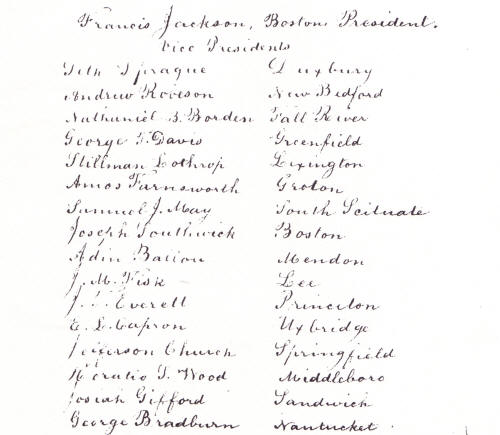 Francis Jackson, Boston, President.
Vice Presidents
Seth Sprague Duxbury
Andrew Robeson New Bedford
Nathaniel B. Borden Fall River
George T. Davis Greenfield
Stillman Lothrop Lexington
Amos Farnsworth Groton
Samuel J. May South Scituate
Joseph Southwick Boston
Adin Ballou Mendon
J. M. Fisk Lee
J. Everett Princeton
E. L. Capron Uxbridge
Jefferson Church Springfield
Horatio G. Wood Middleboro
Josiah Gifford Sandwich
George Bradburn Nantucket.